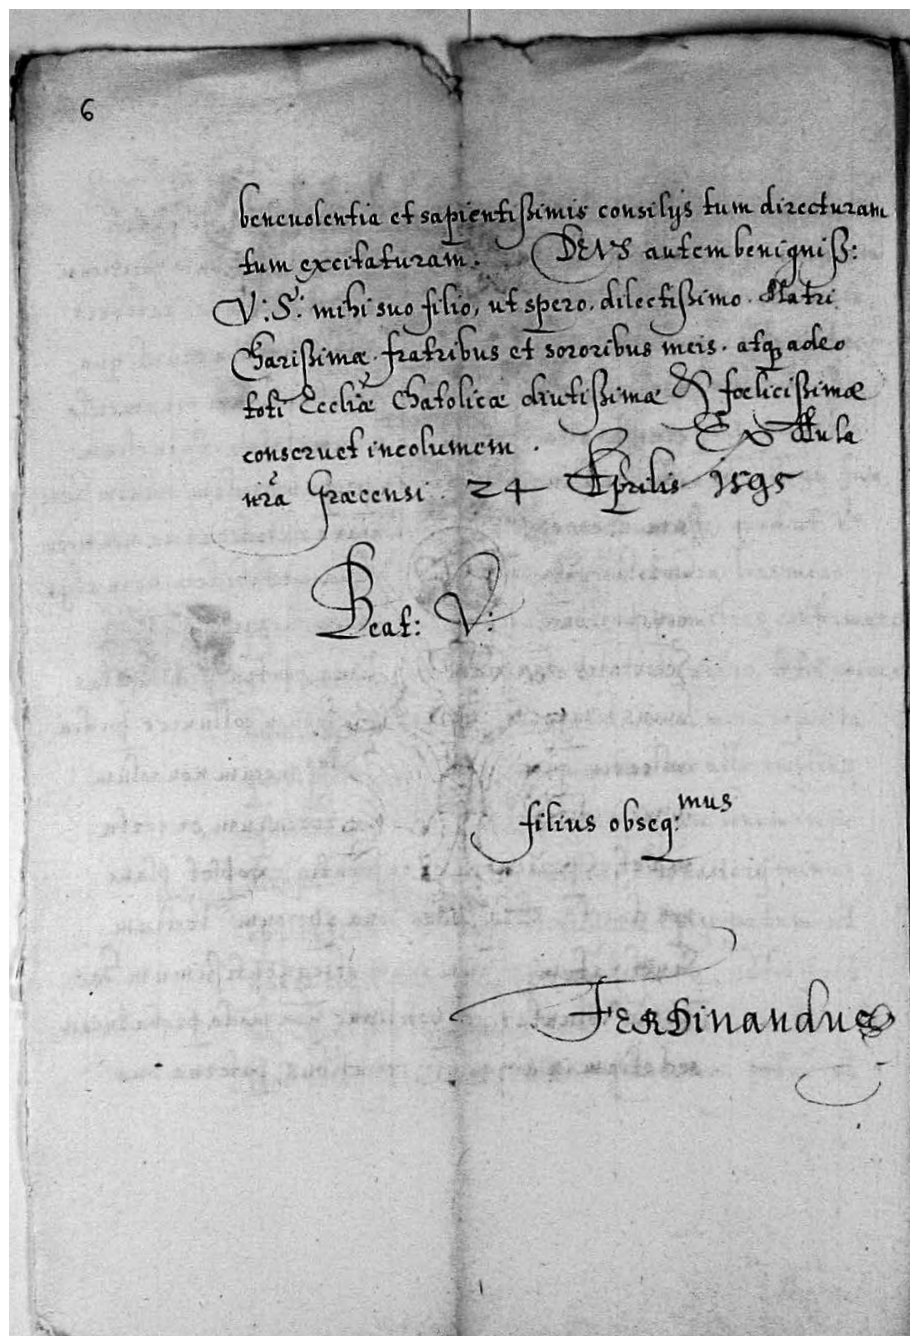 6
beneuolentia et sapientißimis consilijs tum directuram
tum excitaturam. DEUS autem benigniß:
V: S: mihi suo filio, ut spero. dilectißimo. Matri
Charißimæ. fratribus et sororibus meis. atq adeo
toti Eccliæ Catolicæ diutißimæ & fœlicißimæ
conseruet incolumem. Ex Aula
nrã Græcensi. 24 Aprilis 1595
Beat: V:
filius obseq:mus
FERDinandus